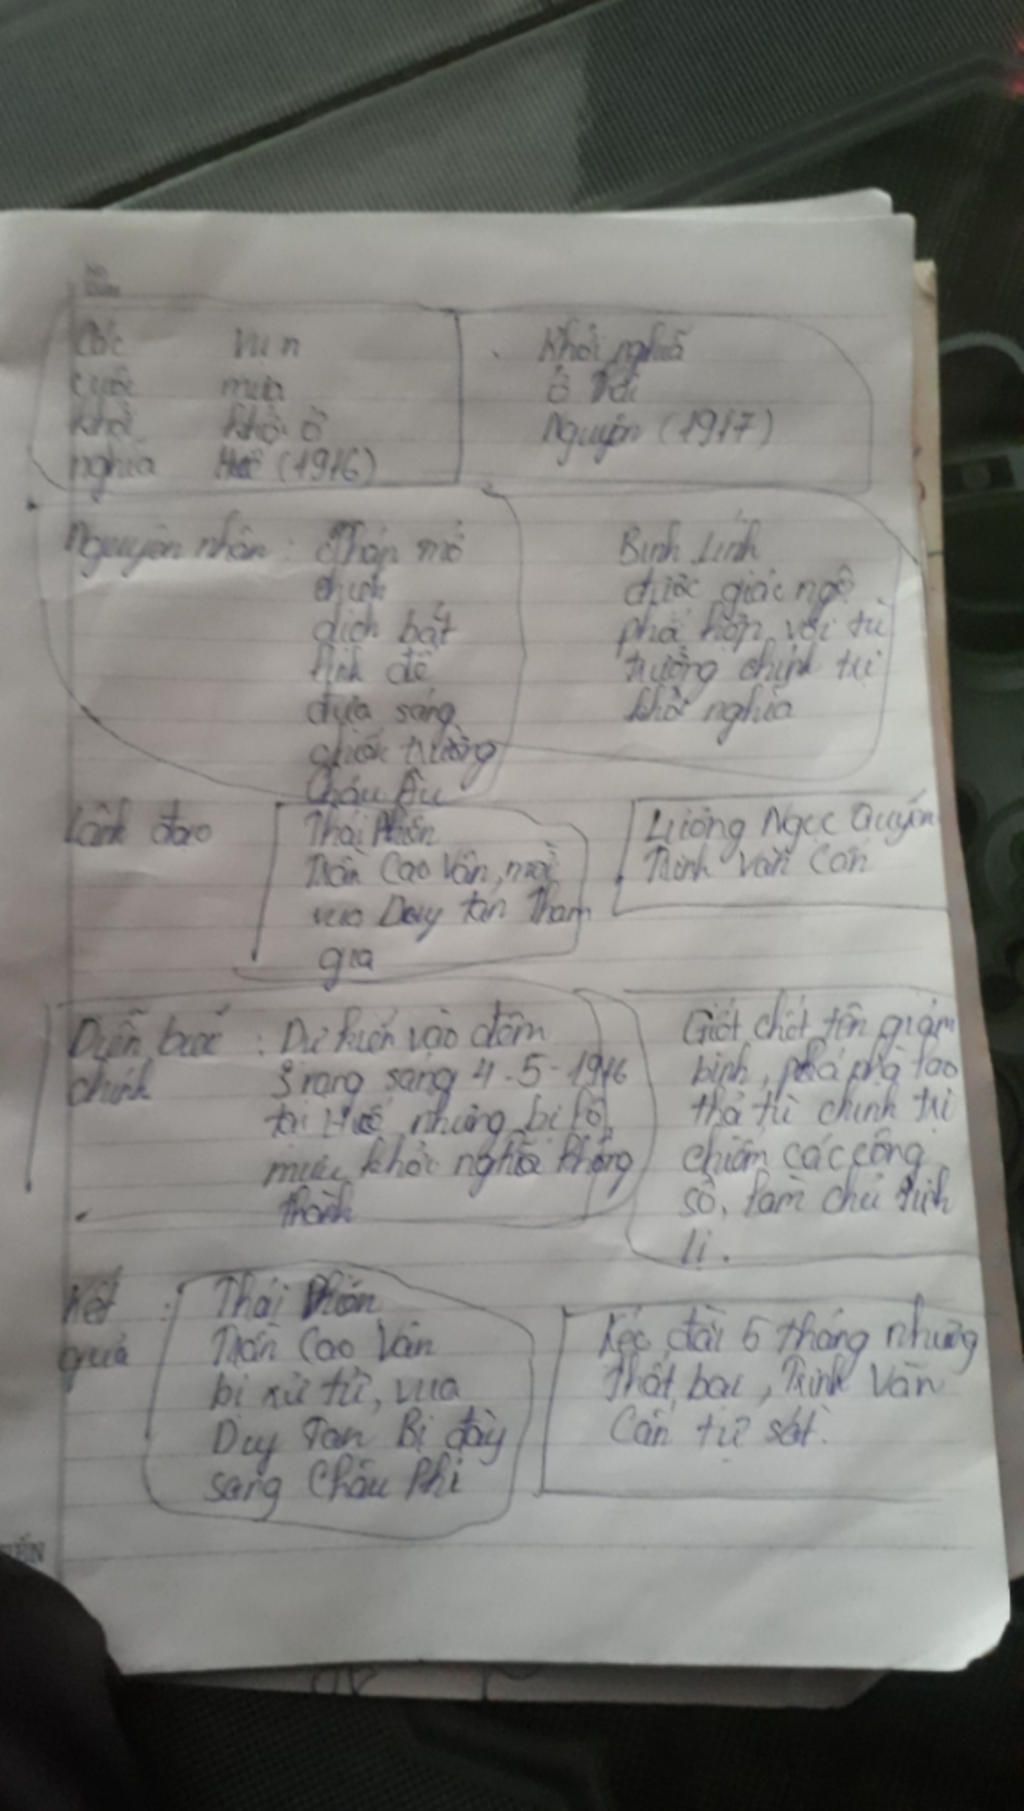 Các Vụ n
cuộc mưu
khởi khởi ở
nghĩa Huế (1916)
Khởi nghĩa
ở Thái
Nguyên (1917)
Nguyên nhân: Pháp mở
chiến
dịch bắt
lính để
đưa sang
chiến trường
Châu Âu
Binh Lính
được giác ngộ
phối hợp với tù
trưởng chính trị
khởi nghĩa
Lãnh đạo
Thái Phiên
Trần Cao Vân, mời
vua Duy tân Tham
gia
Lương Ngọc Quyến
Trịnh Văn Cấn
Diễn biến : Dự kiến vào đêm
chính 3 rạng sáng 4-5-1916
tại Huế nhưng bị lộ
mưu, khởi nghĩa không
thành
Giết chết tên giám
binh, phá
thả tù chính trị
chiếm các công
sở, làm chủ tỉnh
lị.
Kết :
quả
Thái Phiên
Trần Cao Vân
bị xử tử, vua
Duy Tân Bị đày
sang Châu Phi
Kéo dài 5 tháng nhưng
thất bại, Trịnh Văn
Cấn tự sát.